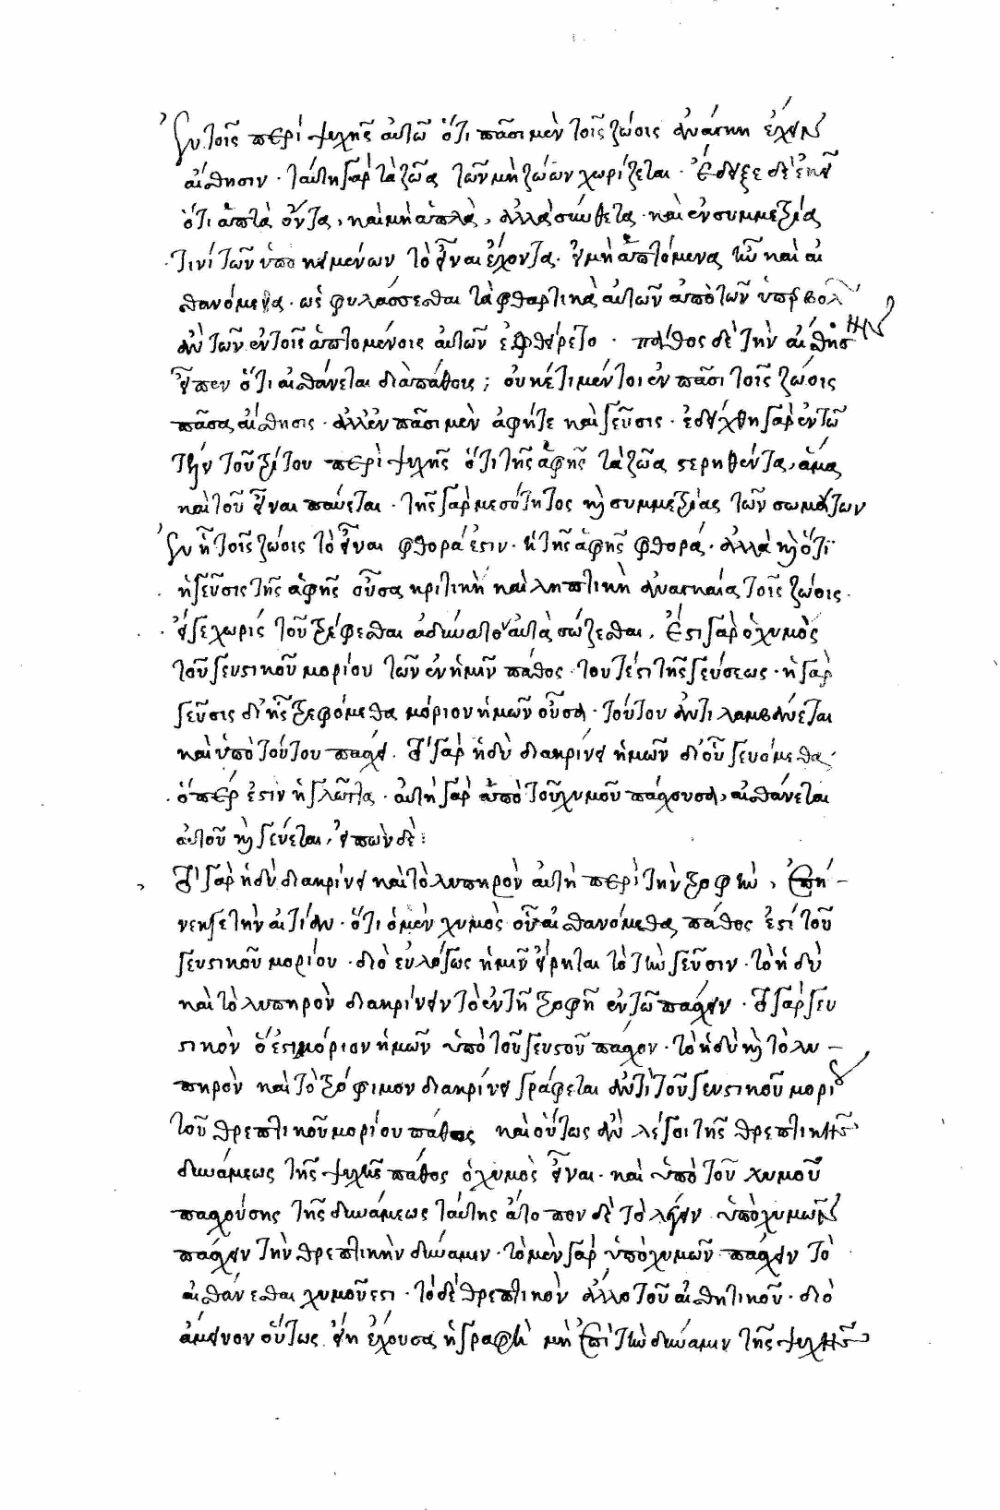 Ἐν τοῖς περὶ ψυχῆς αὐτῶ ὅτι πᾶσι μὲν τοῖς ζώοις ἀνάγκη ἔχειν
αἴσθησιν · ταύτη γὰρ τὰ ζῶα τῶν μὴ ζώων χωρίζεται · ἔδειξε δὲ ἐκεῖ
ὅτι ἁπτὰ ὄντα, καὶ μὴ ἁπλὰ, ἀλλὰ σύνθετα · καὶ ἐν συμμετρία
τινὶ τῶν ὑποκειμένων τὸ εἶναι ἔχοντα · εἰ μὴ ἁπτόμενα ἦν καὶ αἰ
σθανόμενα · ὡς φυλάσσεσθαι τὰ φθαρτικὰ αὐτῶν ἀπὸ τῶν ὑπερβολ
ἂν τῶν ἐν τοῖς ἁπτομένοις αὐτῶν ἐφθείρετο · πάθος δὲ τὴν αἴσθησ
εἶπεν ὅτι αἰσθάνεται διὰ πάθους ; οὐκέτι μέντοι ἐν πᾶσι τοῖς ζώοις
πᾶσα αἴσθησις · ἀλλ' ἐν πᾶσι μὲν ἁφήτε καὶ γεῦσις · ἐδείχθη γὰρ ἐν τῶ
τὴν τοῦ τρίτου περὶ ψυχῆς ὅτι τῆς ἁφῆς τὰ ζῶα στερηθέντα, ἅμα
καὶ τοῦ εἶναι παύεται · τῆς γὰρ μεσότητος καὶ συμμετρίας τῶν σωμάτων
ἐν ἧ τοῖς ζώοις τὸ εἶναι φθορά ἐστιν · ἡ τῆς ἁφῆς φθορά · ἀλλὰ καὶ ὅτι
ἡ γεῦσις τῆς ἁφῆς οὖσα κριτικὴ καὶ ληπτικὴ ἀναγκαία τοῖς ζώοις ·
εἴγε χωρὶς τοῦ τρέφεσθαι ἀδύνατον αὐτὰ σώζεσθαι. Ἔστι γὰρ ὁ χυμὸς
τοῦ γευστικοῦ μορίου τῶν ἐν ἡμῖν πάθος · τουτέστι τῆς γεύσεως · ἡ γὰρ
γεῦσις δι' ἧς τρεφόμεθα μόριον ἡμῶν οὖσα · τούτου ἀντιλαμβάνεται
καὶ ὑπὸ τούτου πάσχει. Τὸ γὰρ ἡδὺ διακρίνει ἡμῶν δι' οὗ γευόμεθα ·
ὅπερ ἐστὶν ἡ γλῶττα · αὐτὴ γὰρ ἀπὸ τοῦ χυμοῦ πάσχουσα, αἰσθάνεται
αὐτοῦ καὶ γεύεται, εἰπὼν δὲ :
Τὸ γὰρ ἡδὺ διακρίνει καὶ τὸ λυπηρὸν αὐτὴ περὶ τὴν τροφὴν, ἐπή-
νεγκε τὴν αἰτίαν · ὅτι ὁ μὲν χυμὸς οὗ αἰσθανόμεθα πάθος ἐστὶ τοῦ
γευστικοῦ μορίου · διὸ εὐλόγως ἡμῖν εἴρηται τὸ τὴν γεῦσιν · τὸ ἡδὺ
καὶ τὸ λυπηρὸν διακρίνειν τὸ ἐν τῆ τροφῆ ἐν τῶ πάσχειν · Τὸ γὰρ γευ
στικὸν ὅ ἐστι μόριον ἡμῶν ὑπὸ τοῦ γευστοῦ πάσχον · τὸ ἡδὺ καὶ τὸ λυ-
πηρὸν καὶ τὸ τρόφιμον διακρίνει γράφεται ἀντὶ τοῦ γευστικοῦ μορίου
τοῦ θρεπτικοῦ μορίου πάθος καὶ οὕτως ἂν λέγοι τῆς θρεπτικῆς
δυνάμεως τῆς ψυχῆς πάθος ὁ χυμὸς εἶναι · καὶ ὑπὸ τοῦ χυμοῦ
πασχούσης τῆς δυνάμεως ταύτης ἄτοπον δὲ τὸ λέγειν ὑπὸ χυμῶν
πάσχειν τὴν θρεπτικὴν δύναμιν · τὸ μὲν γὰρ ὑπὸ χυμῶν πάσχειν τὸ
αἰσθάνεσθαι χυμοῦ ἐστι · τὸ δὲ θρεπτικὸν ἄλλο τοῦ αἰσθητικοῦ · διὸ
ἄμεινον οὕτως εἴη ἔχουσα ἡ γραφὴ μὴ ἐπὶ τὴν δύναμιν τῆς ψυχῆς